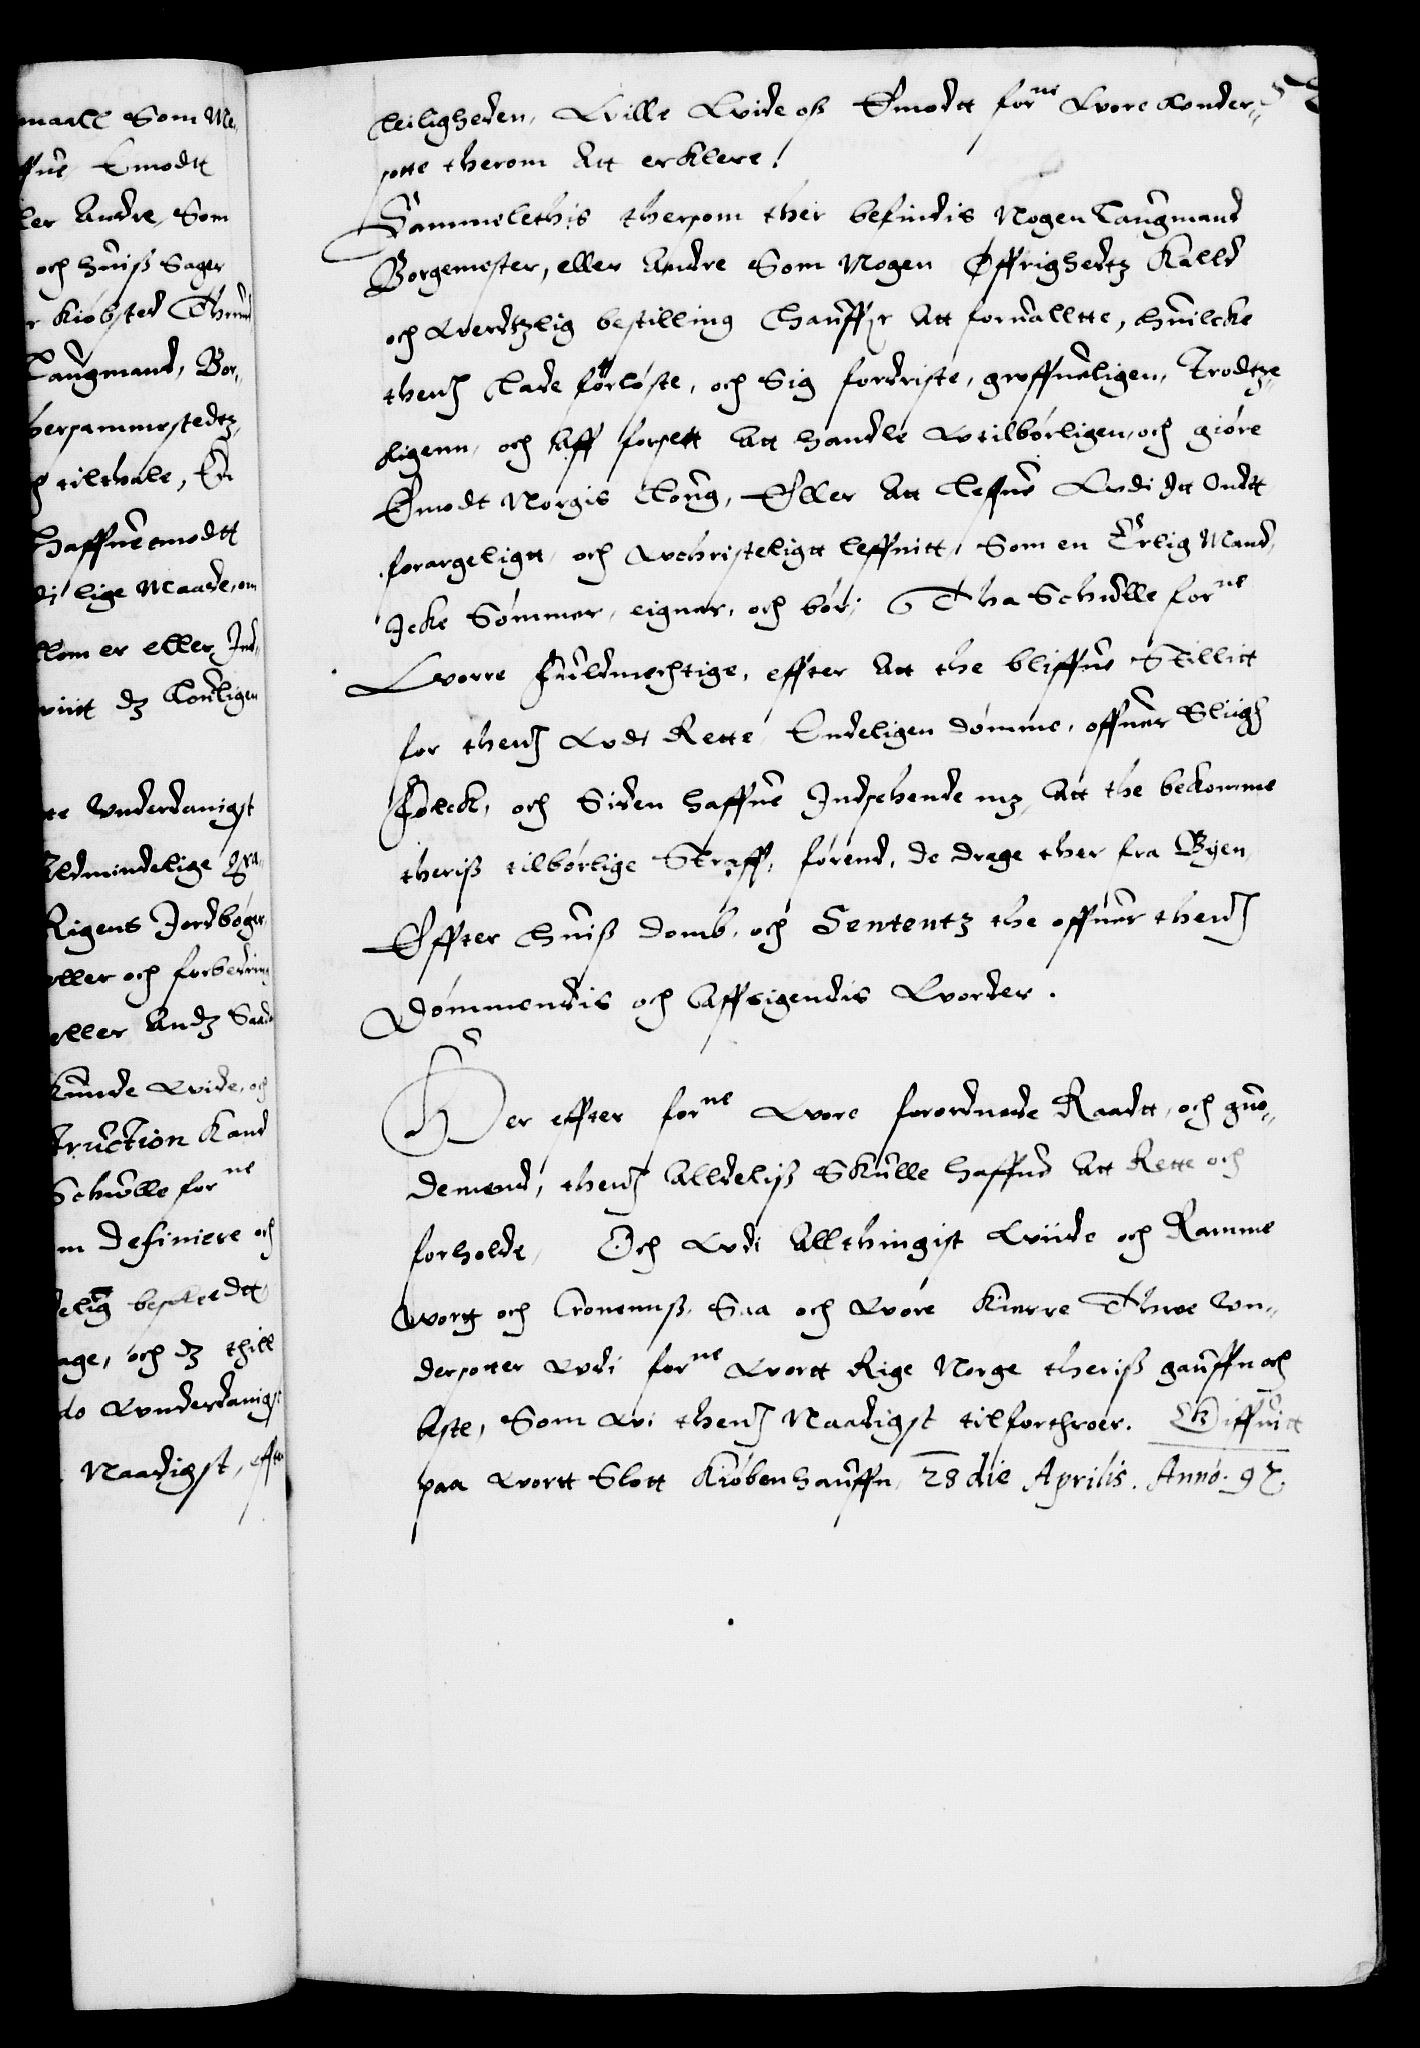 maall Som Me¬
ffue Emodtt
ler Andre, Som
och huiss Sager
r Kiøbsted Thrund
Laugmand, Bor¬
hersammestedtz,
tilthale, En
haffue emodtt
di lige Maade, om
llom er eller Ind¬
wiitt dz Louligen
te Vnderdanigst
Aldmindelige
Rigens Jordbøger,
eller och forbedring
eller Andz Saad
Kunde wide, och
truction Kand
Schulle forne
m definiere och
delig beskeedtt
age, och dz thill
do wnderdanigst
Naadigst, effter
leiligheden, Wille Wide oss Emodtt forne Wore Wnder¬
sotte therom Att erklere!
Sammelethis thersom ther befindis Nogen Laugmand
Borgemester, eller Andre Som Nogen Øffrighedtz Kalld
och Werdtzlig bestilling hauffer Att foruallte, huilcke
thennom Lade forløste, och Sig fordriste, groffueligen, Trodtze¬
ligenn, och Aff forsett Att handle Wtilbørligen, och giøre
Emodt Norgis Loug, Eller Att leffue Wdi itt Ondtt
forargeligtt, och Wchristeligtt leffnitt, Som en Erlig Mand,
Icke Sømmer, eigner, och bør; Tha Schulle forne
Worre Fuldmechtige, effter Att the bliffue Stillitt
for thennom Wdi Rette Endeligen dømme, offuer Sliigh
Folck, och Siden haffue Indsehende mz, Att the bekomme
theriss tilbørlige Straff, førend, de drage ther fra Byen,
Effter huiss domb, och Sententz the offuer thennom
Dømmendis och Affsigendis Worder.
Her effter forne Wore forordnede Raadtt, och guo¬
demend, thennom Alldeliss Skulle haffue Att Rette och
forholde, Och Wdi Allthingist Wiide och Ramme
Wortt och Cronenns, Saa och Wore Kierre Throe Wn¬
dersotter Wdi forne Wortt Rige Norge theriss gauffn och
beste, Som Wi thennom Naadigst tilforthroer. Giffuitt
paa Wortt Slott Kiøbenhauffn, 28 die Aprilis. Anno. 97.